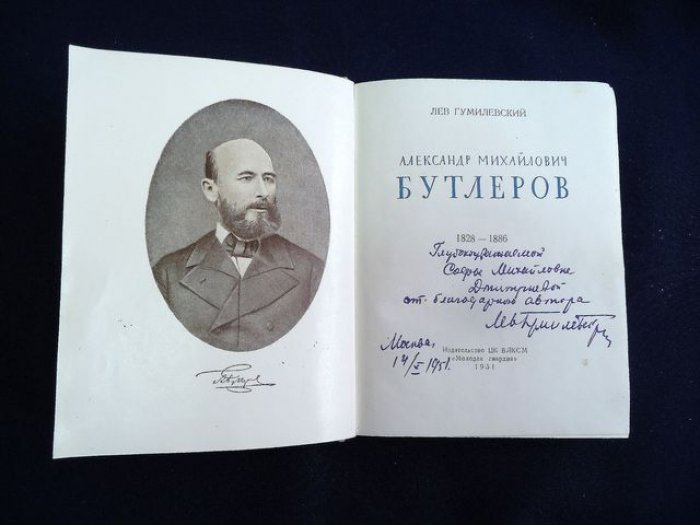 ЛЕВ ГУМИЛЕВСКИЙ
АЛЕКСАНДР МИХАЙЛОВИЧ
БУТЛЕРОВ
1828 — 1886
Глубокоуважаемой
Софье Михайловне
Дмитриевой
от благодарного автора
ЛевГумилевск
Москва,
14/V 1951.
Издательство ЦК ВЛКСМ
«Молодая гвардия»
1951